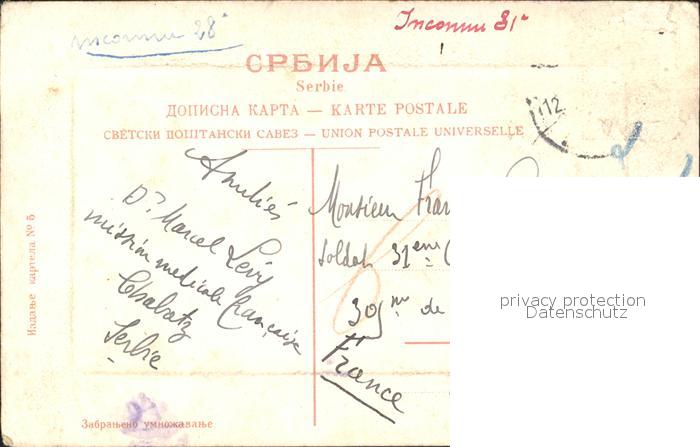 inconnu 28ᵉ
Inconnu 31ᵉ
СРБИЈА
Serbie
ДОПИСНА КАРТА — KARTE POSTALE
СВЕТСКИ ПОШТАНСКИ САВЕЗ — UNION POSTALE UNIVERSELLE
12
Amitiés
Dr Marcel Lévy
mission medicale française
Chabatz
Serbie
Monsieur Fran
Soldat 31eme
309me de
France
privacy protection
Datenschutz
Издање картела № 5
Забрањено умножавање